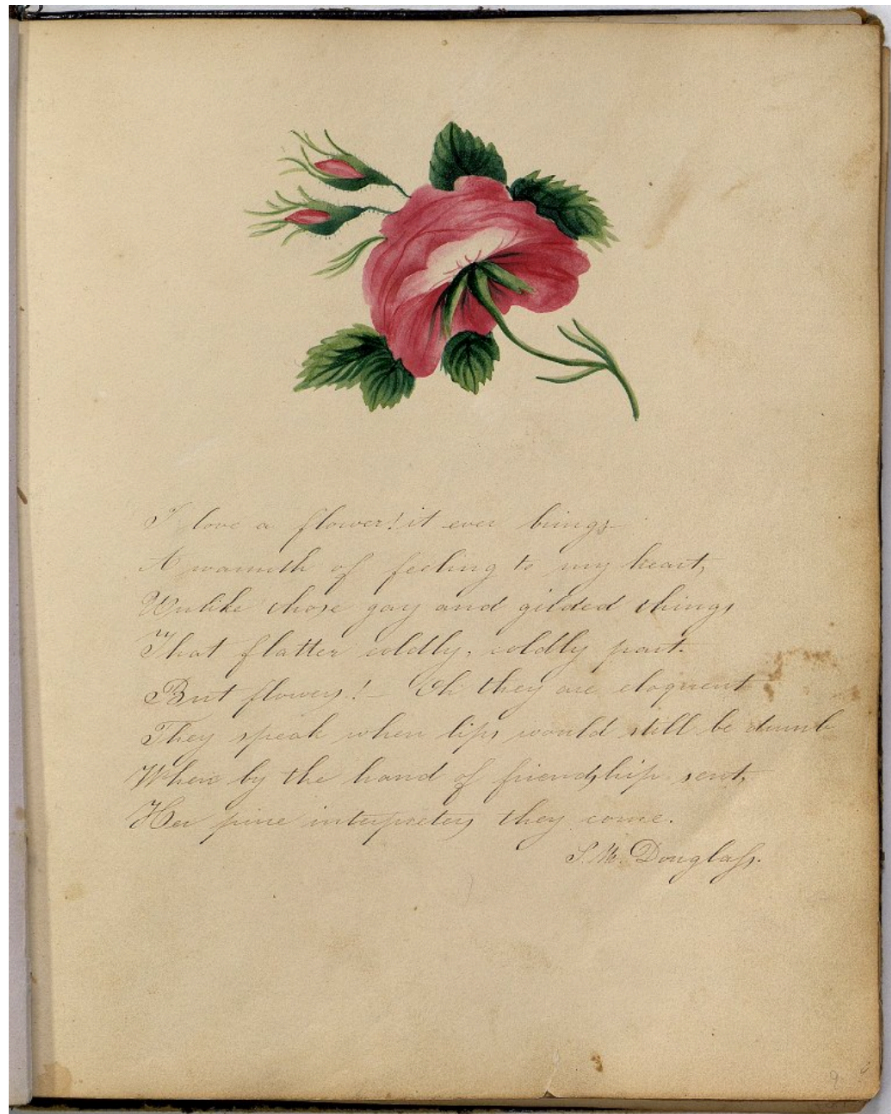 I love a flower! it ever brings
A warmth of feeling to my heart,
Unlike those gay and gilded things
That flatter coldly, coldly part.
But flowers! – Oh they are eloquent
They speak when lips would still be dumb
When by the hand of friendship sent,
Her pure interpreters they come.
S. M. Douglass.
9